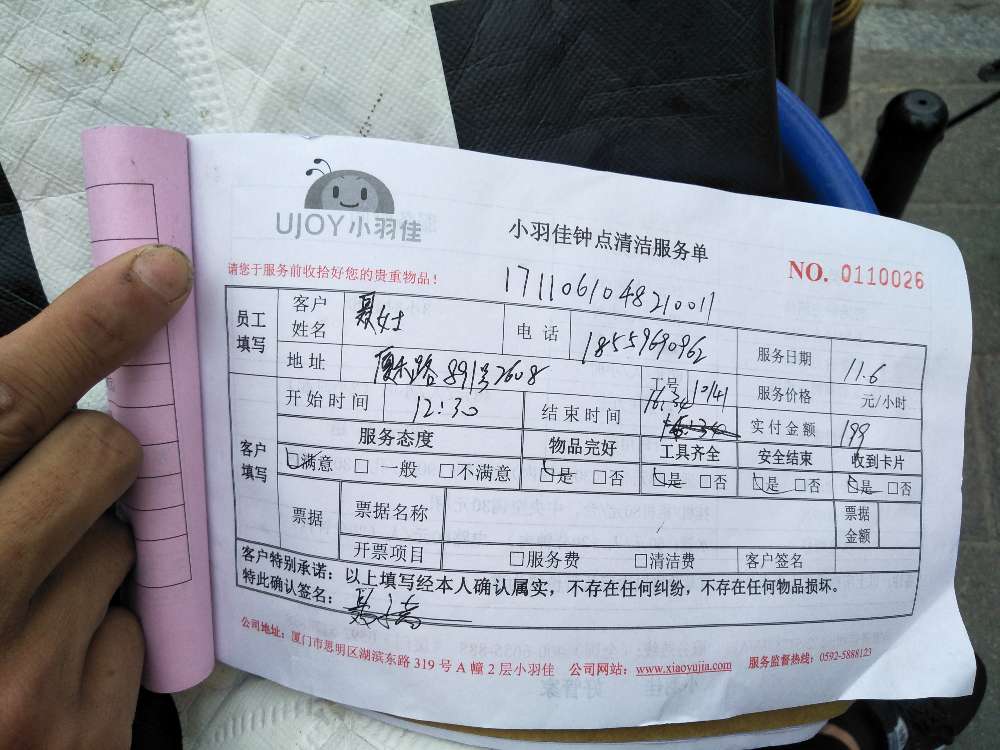 UJOY小羽佳
小羽佳钟点清洁服务单
NO. 0110026
请您于服务前收拾好您的贵重物品！
1711061048210011
员工填写 客户姓名 聂女士 电话 18559690962 服务日期 11.6
地址 厦禾路891号2608 工号 10141 服务价格 元/小时
客户填写 开始时间 12:30 结束时间 16:34 实付金额 199
服务态度 物品完好 工具齐全 安全结束 收到卡片
□满意 □一般 □不满意 □是 □否 □是 □否 □是 □否 □是 □否
票据 票据名称 票据金额
开票项目 □服务费 □清洁费 客户签名
客户特别承诺：以上填写经本人确认属实，不存在任何纠纷，不存在任何物品损坏。
特此确认签名：
公司地址：厦门市思明区湖滨东路 319 号 A 幢 2 层小羽佳 公司网站：www.xiaoyujia.com 服务监督热线：0592-5888123